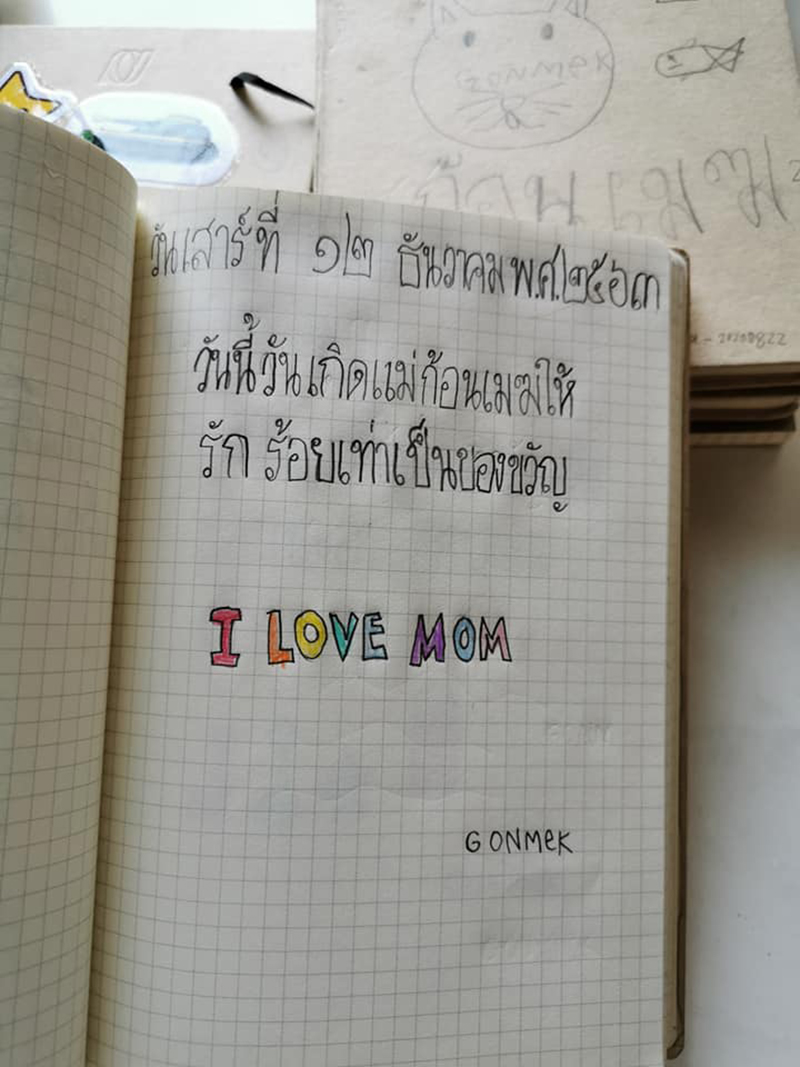 GONMEK
ก้อนเมฆ
- 20200822
วันเสาร์ที่ ๑๒ ธันวาคม พ.ศ.๒๕๖๓
วันนี้วันเกิดแม่ก้อนเมฆให้
รัก ร้อยเท่าเป็นของขวัญ
I LOVE MOM
GONMEK